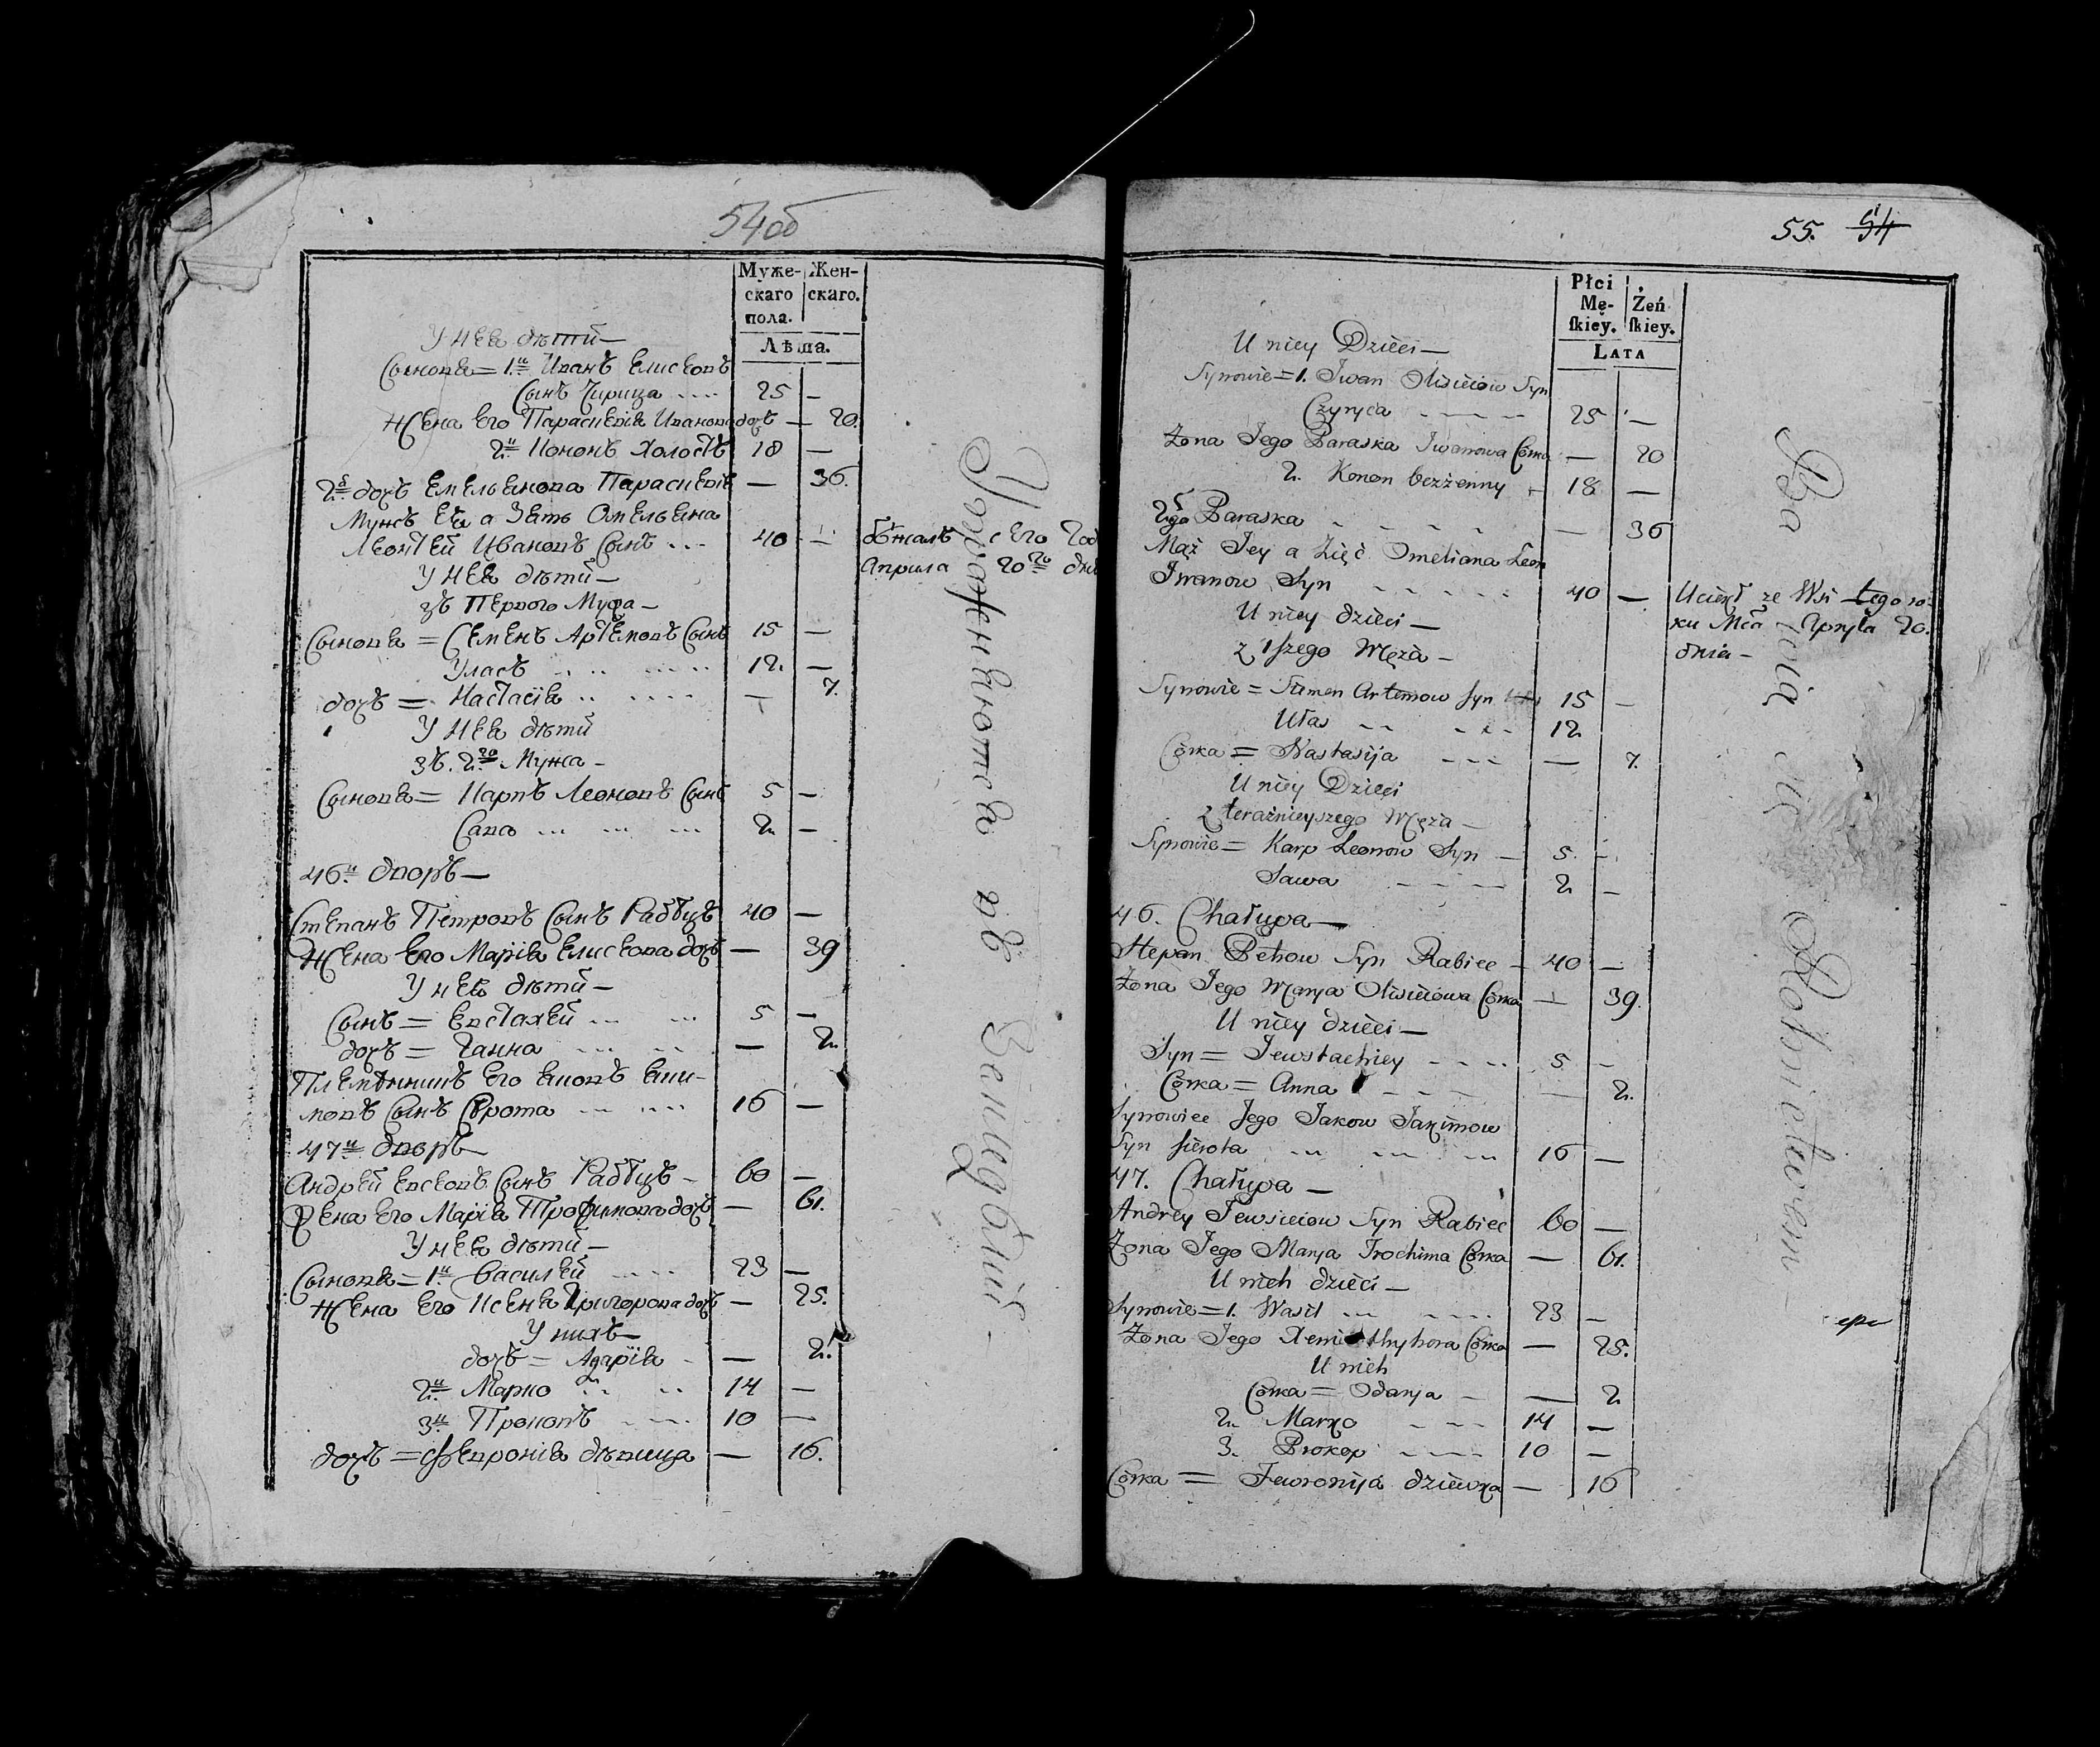 54об
Муже- Жен-
скаго скаго.
пола.
Лѣта.
У нея дѣти —
Сыновя = 1й Иванъ Елисеовъ
Сынъ Чирица 25 —
Жена Его Параскевія Иванова дочь — 20.
2й Кононъ Холостъ 18 —
2я дочь Емельянова Параскевія — 36.
Мужъ Ея а Зять Омельяна
Леонтей Ивановъ Сынъ 40 — бѣжалъ сего Год
Апреля 20го дня
У нея дѣти —
зъ Первого Мужа —
Сыновя = Семенъ Артемовъ Сынъ 15 —
Уласъ 12. —
дочь = Настасія — 7.
У нея дѣти
зъ 2го Мужа —
Сыновя = Карпъ Леоновъ Сынъ 5 —
Сава 2. —
46й дворъ —
Степанъ Петровъ Сынъ Рабецъ 40 —
Жена Его Марія Елисеова дочь — 39
У нея дѣти —
Сынъ = Евстахей 5 —
дочь = Ганна — 2.
Племянникъ Его Яковъ Яки-
мовъ Сынъ Сирота 16 —
47й дворъ —
Андрей Евсеовъ Сынъ Рабецъ — 60 —
Жена Его Марія Трофимова дочь — 61.
У нея дѣти —
Сыновя = 1й Василей 23 —
Жена Его Ксеня Григорова дочь — 25.
У нихъ —
дочь = Адарія — 2.
2й Марко 14 —
3й Прокопъ 10 —
дочь = Февронія дѣвица — 16.
Упражняются въ Земледѣліи —
55. 54
Płci
Mę- Żeń
ſkiey. ſkiey.
LATA
U niey Dzieci —
Synowie = 1. Iwan Olisieiow Syn
Czyryca 25 —
Żona Jego Paraska Iwanowa Córka — 20
2. Konon bezżenny 18 —
2ga Paraska — 36
Mąż Jey a Zięć Omeliana Leon
Iwanow Syn 40 — Uciekł ze Wsi tego ro-
ku Mca Apryla 20.
dnia —
U niey dzieci —
z 1ſzego Męża —
Synowie = Semen Artemow Syn 15 —
Ułas 12
Córka = Nastasija — 7.
U niey Dzieci
z teraźnieyszego Męża —
Synowie = Karp Leonow Syn — 5. —
Sawa 2 —
46. Chałupa —
Stepan Petrow Syn Rabiec — 40 —
Żona Jego Marya Olisieiowa Córka — 39.
U niey dzieci —
Syn = Jewstachiey 5 —
Córka = Anna — 2.
Synowiec Jego Jakow Jakimow
Syn ſierota 16 —
47. Chałupa —
Andrey Jewsieiow Syn Rabiec 60 —
Żona Jego Marya Trochima Córka — 61.
U nich dzieci —
Synowie = 1. Wasil 23 —
Żona Jego Xenia Hryhora Córka — 25.
U nich
Córka = Odarya — 2
2. Marko 14 —
3. Prokop 10 —
Córka = Jewronija dziewka — 16
Bawią się Rolnictwem —